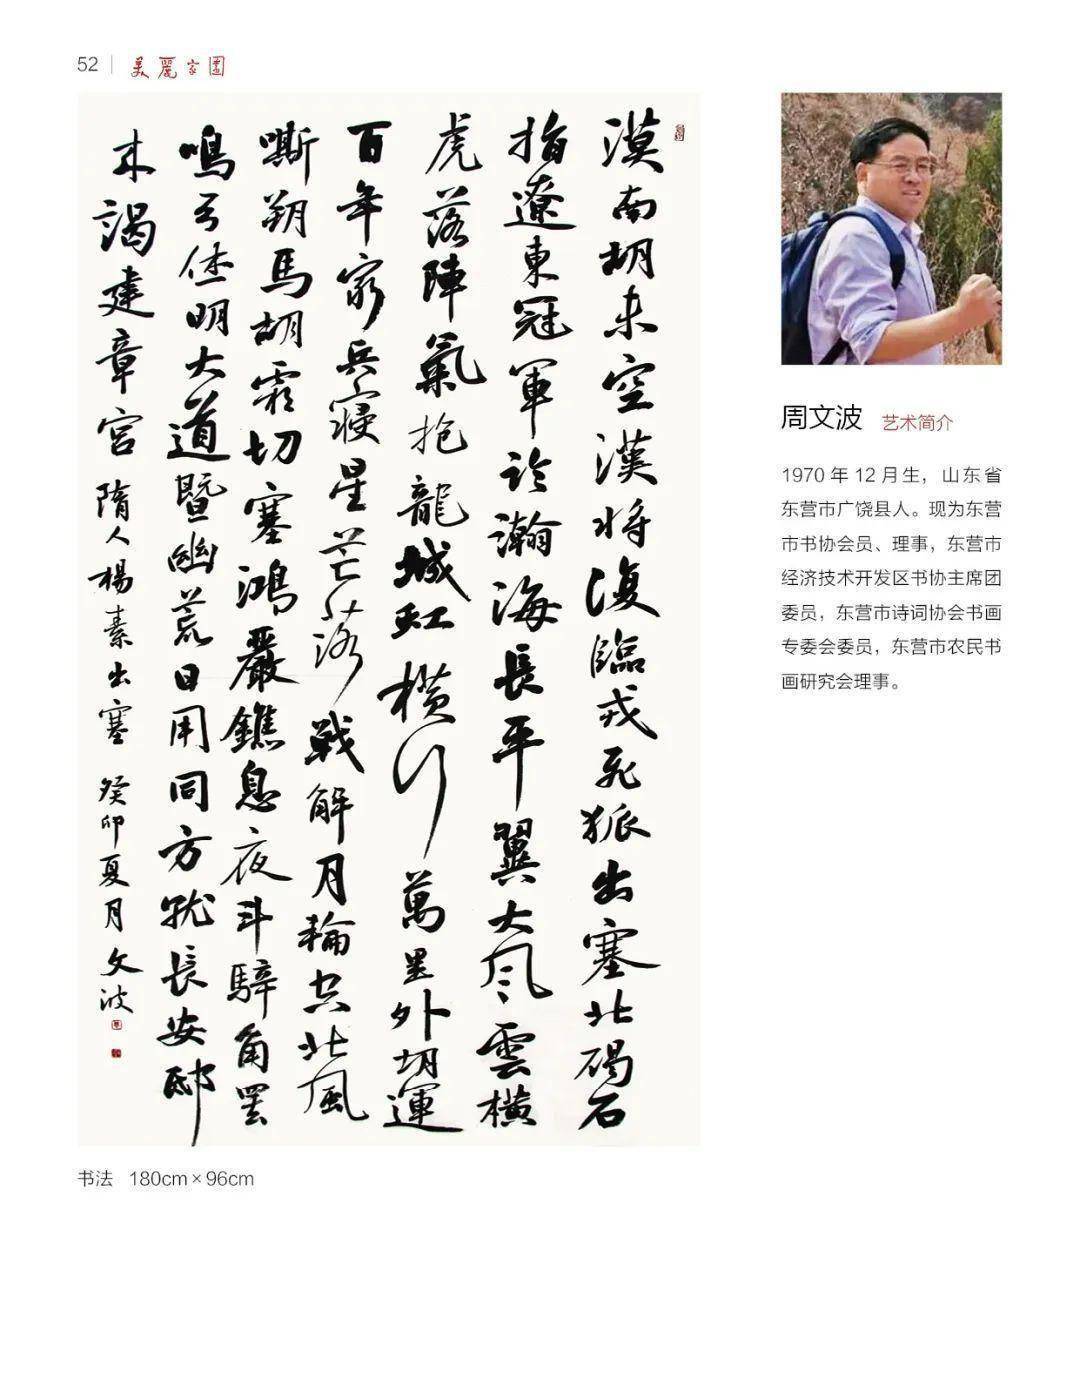 52 美麗家園
漠南胡未空漢將復臨戎飛狐出塞北碣石
指遼東冠軍臨瀚海長平翼大風雲橫
虎落陣氣抱龍城虹橫行萬里外胡運
百年窮兵寢星芒落戰解月輪空北風
嘶朔馬胡霜切塞鴻嚴鐎息夜斗騂角罷
鳴弓休明大道暨幽荒日用同方就長安邸
来謁建章宮 隋人楊素出塞 癸卯夏月文波
书法 180cm×96cm
周文波 艺术简介
1970 年 12 月生，山东省
东营市广饶县人。现为东营
市书协会员、理事，东营市
经济技术开发区书协主席团
委员，东营市诗词协会书画
专委会委员，东营市农民书
画研究会理事。